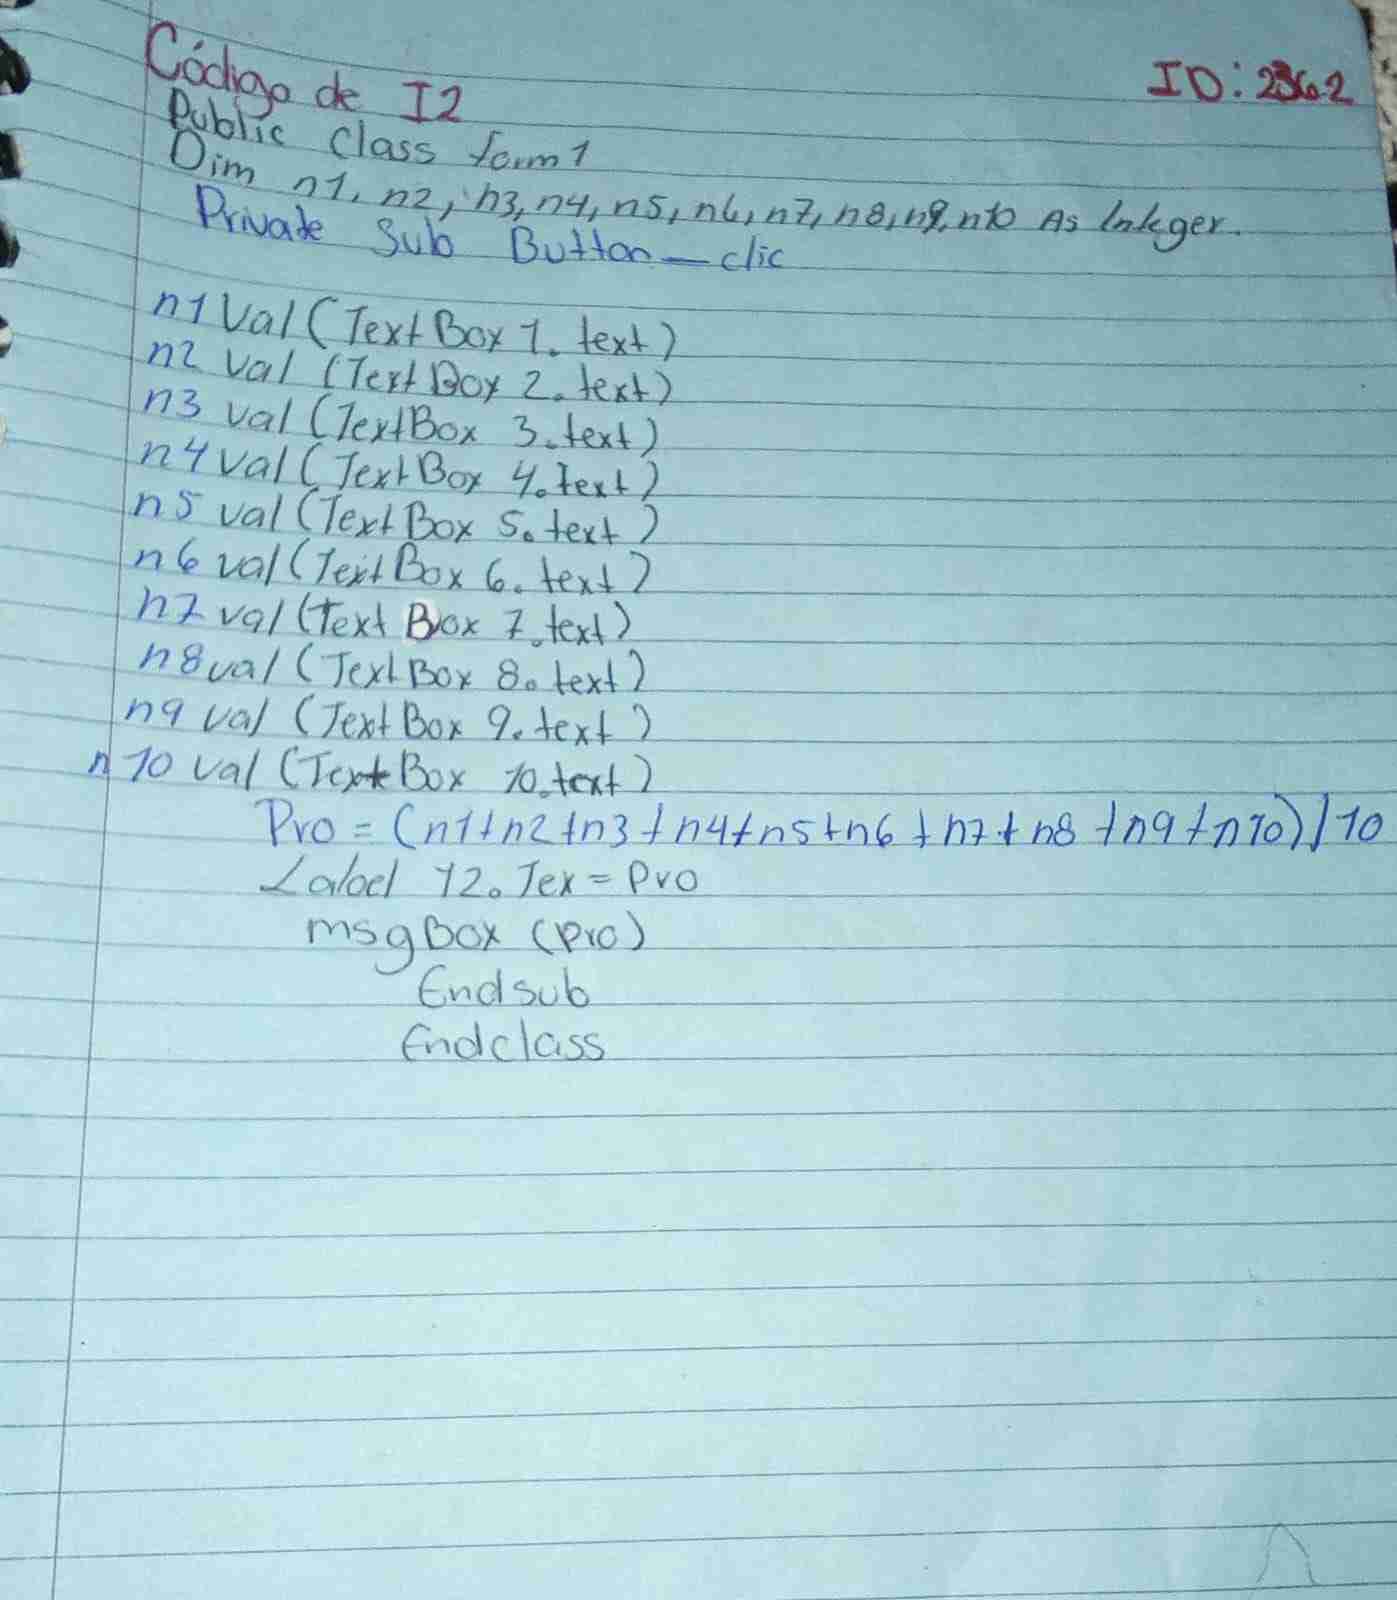 Código de I2
ID: 2362
Public Class form1
Dim n1, n2, n3, n4, n5, n6, n7, n8, n9, n10 As Integer.
Private Sub Button_clic
n1 Val (TextBox 1. text)
n2 val (TextBox 2. text)
n3 val (TextBox 3. text)
n4 val (TextBox 4. text)
n5 val (TextBox 5. text)
n6 val (TextBox 6. text)
n7 val (Text Box 7. text)
n8 val (TextBox 8. text)
n9 val (TextBox 9. text)
n10 val (Text Box 10. text)
Pro = (n1+n2+n3+n4+n5+n6+n7+n8+n9+n10)/10
Label 12. Tex = Pro
msgBox (pro)
Endsub
Endclass